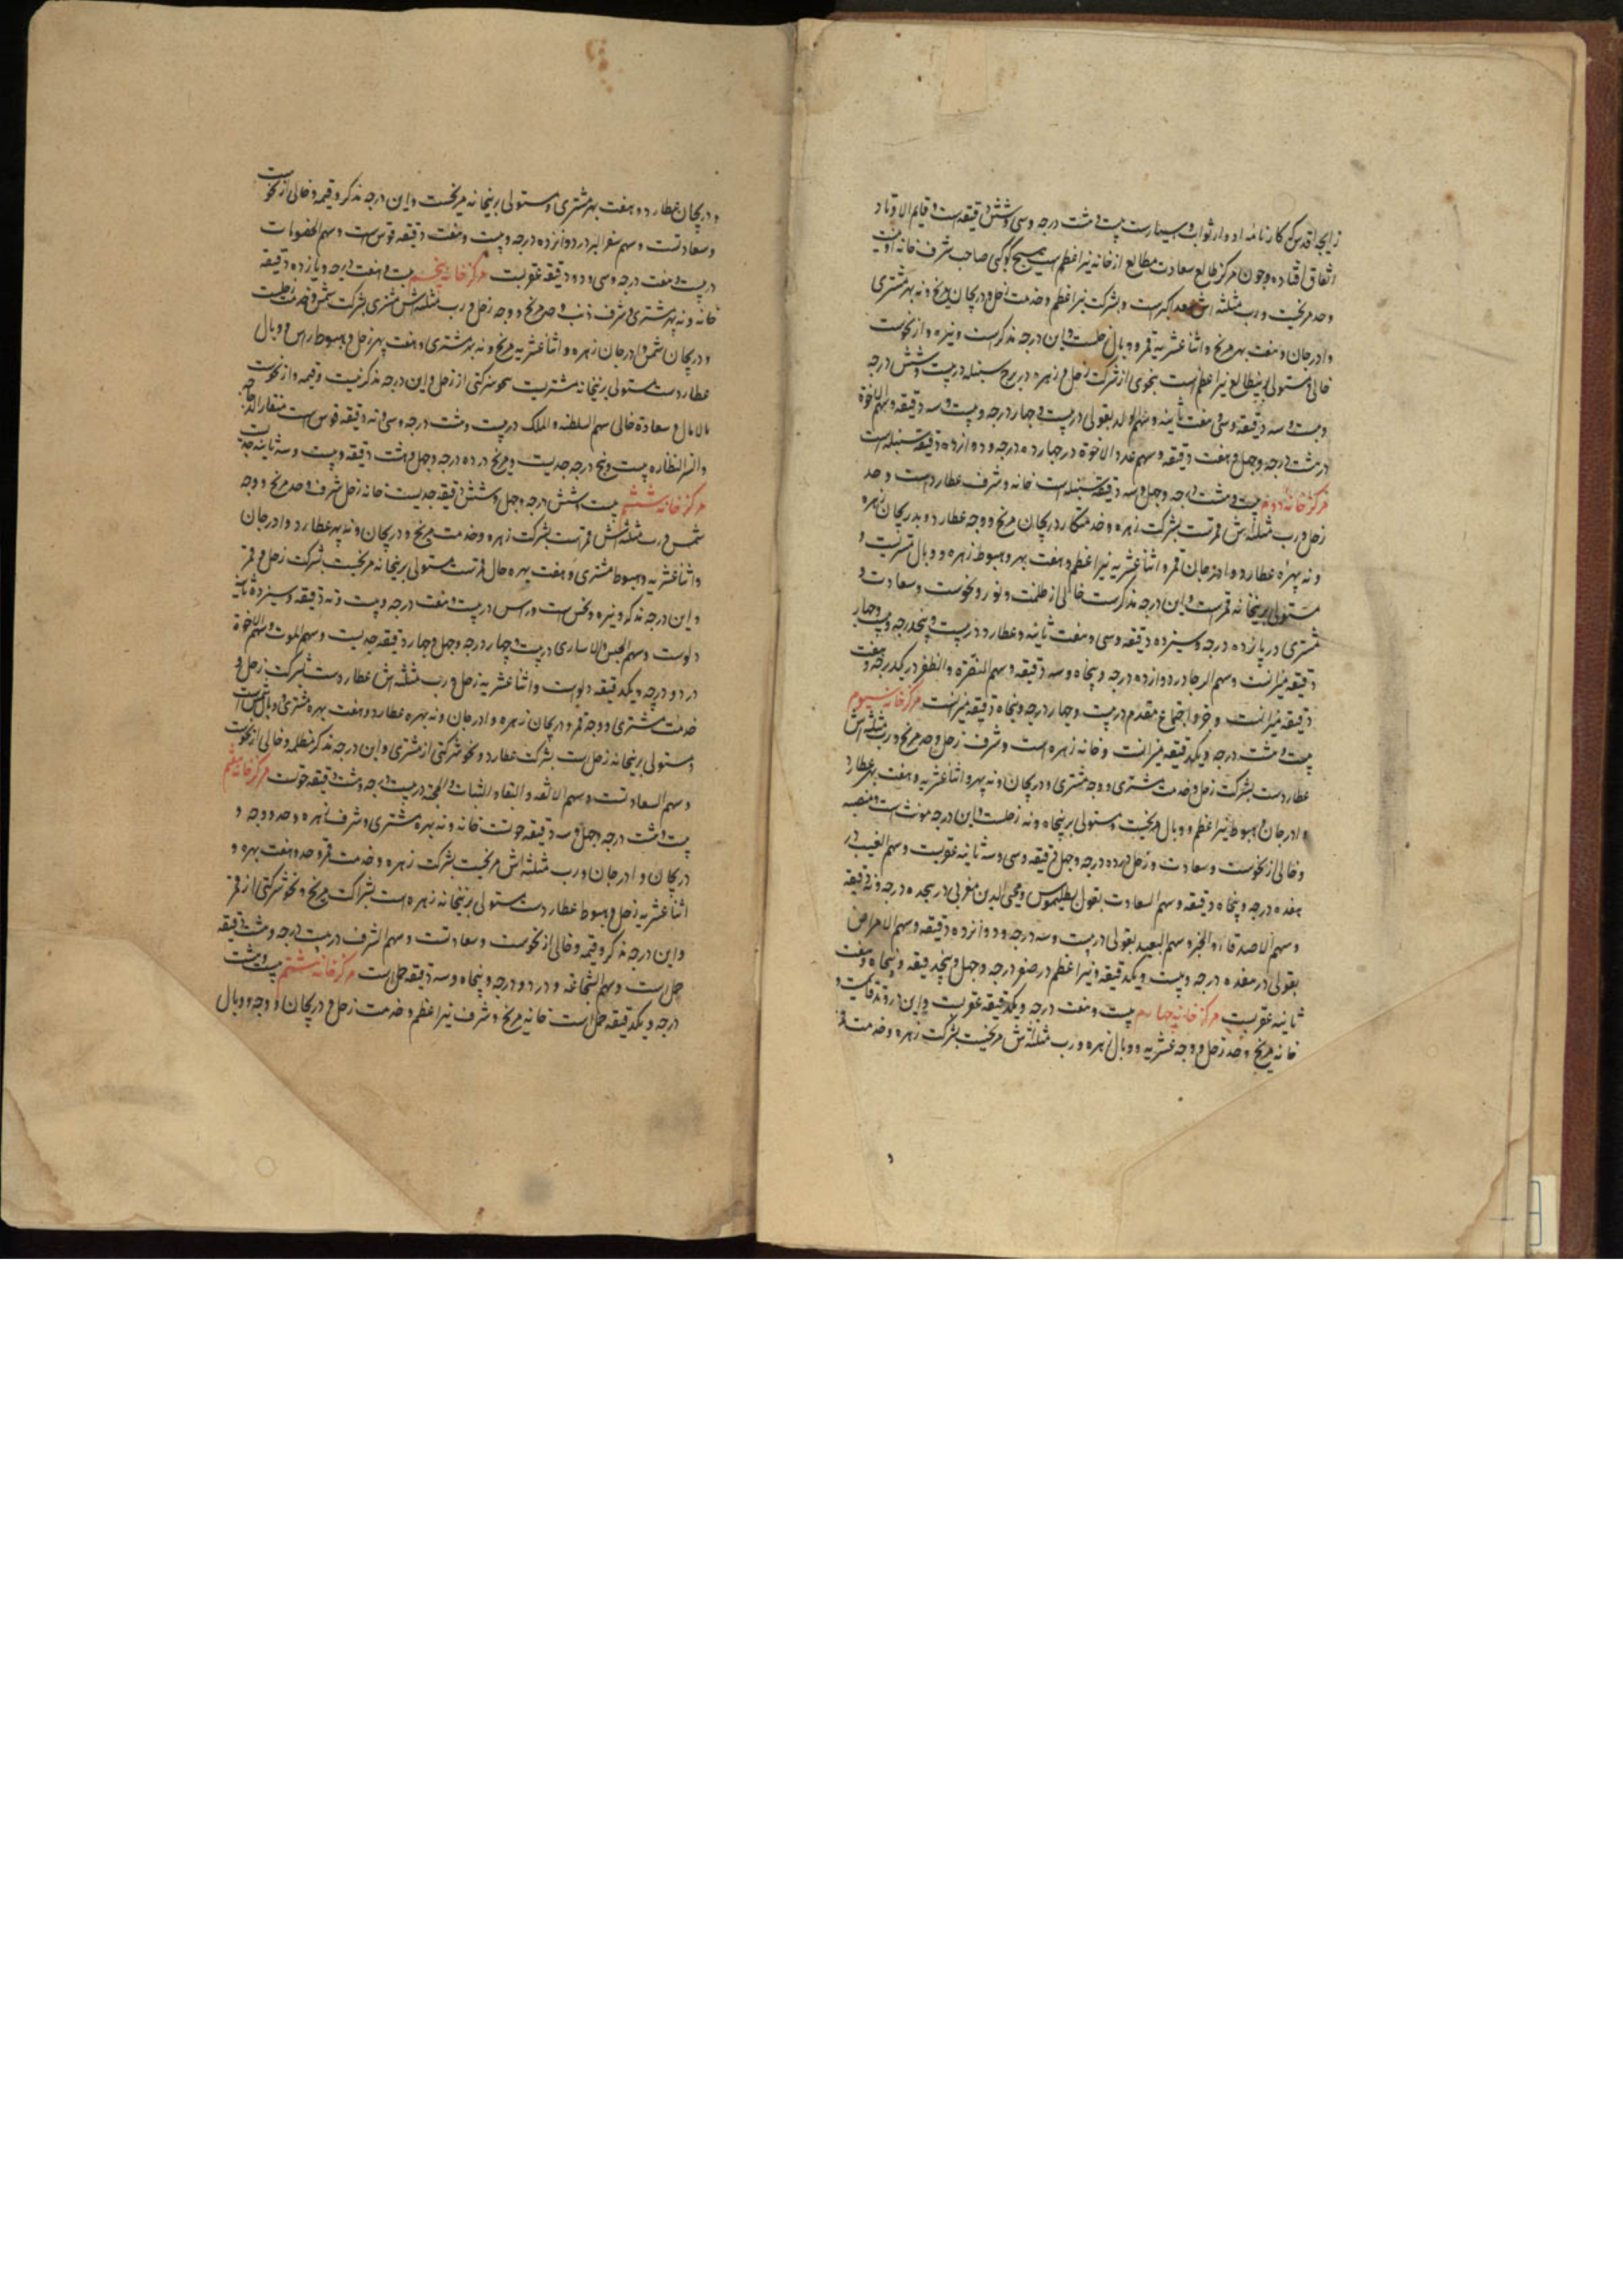 زایجه اقدس که کارنامه ادوار ثوابت و سیارست بیست و هشت درجه و سی و شش دقیقه است و قایم الاوتاد
اتفاق افتاده و چون مرکز طالع سعادت مطالع از خانه نیر اعظم است هیچ کوکبی صاحب شرف خانه او نیست
و حد مریخست و رب مثلثه اش سعد اکبرست و بشرکت نیر اعظم و خدمت زحل و دریجان مریخ و نه بهر مشتری
و ادرجان و هفت بهر مریخ و اثنا عشریه قمر و وبال زحلست و این درجه مذکرست و نیره و از نحوست
خالی و مستولی برین طالع نیر اعظم است بنحوی از شرکت زحل و زهره در برج سنبله در بیست و شش درجه
و بیست و سه دقیقه و سی و هفت ثانیه و سهم الولد بقولی در بیست و چهار درجه و بیست و سه دقیقه و سهم الاخوة
در هشت درجه و چهل و هفت دقیقه و سهم عدد الاخوة در چهارده درجه و دوازده دقیقه سنبله است
مرکز خانه دوم بیست و هشت درجه و چهل و سه دقیقه سنبله است خانه و شرف عطاردست و حد
زحل و رب مثلثه اش قمرست بشرکت زهره و خدمتکار دریجان مریخ و وجه عطارد و بدریجان زهره
و نه بهره عطارد و ادرجان قمر و اثنا عشریه نیر اعظم و هفت بهر و هبوط زهره و وبال مشتریست و
مستولی برین خانه قمرست و این درجه مذکرست خالی از ظلمت و نور و نحوست و سعادت و
مشتری در پانزده درجه و سیزده دقیقه و سی و هفت ثانیه و عطارد در بیست و پنج درجه و بیست و چهار
دقیقه میزانست و سهم الرجا در دوازده درجه و پنجاه و سه دقیقه و سهم النصرة و الظفر در یکدرجه و هفت
دقیقه میزانست و جزو اجتماع مقدم در بیست و چهار درجه و پنجاه دقیقه میزانست مرکز خانه سیوم
بیست و هشت درجه و یکدقیقه میزانست و خانه زهره است و شرف زحل و حد مریخ و رب مثلثه اش
عطاردست بشرکت زحل و خدمت مشتری و وجه مشتری و دریجان و نه بهره و اثنا عشریه و هفت بهر عطارد
و ادرجان و هبوط نیر اعظم و وبال مریخست و مستولی برین خانه زحلست و این درجه مونث است
و خالی از نحوست و سعادت و زحل در هده درجه و چهل دقیقه و سی و سه ثانیه عقربست و سهم الغیب در
هفده درجه و پنجاه دقیقه و سهم السعادت بقول بطلیموس و محی الدین مغربی در هجده درجه و نه دقیقه
و سهم الاصدقاء و الخیر و سهم العبید بقولی در بیست و سه درجه و دوانزده دقیقه و سهم الامراض
بقولی در هفده درجه و بیست و یکدقیقه و نیر اعظم در صفر درجه و چهل و پنجدقیقه و پنجاه و هفت
ثانیه عقربست مرکز خانه چهارم بیست و هفت درجه و یکدقیقه عقربست و این در
خانه مریخ و حد زحل و وجه عشریه و وبال زهره و رب مثلثه اش مریخست بشرکت زهره و خدمت قمر
و دریجان عطارد و هفت بهر مشتری و مستولی برین خانه مریخست و این درجه مذکر و قیمه و خالی از نحوست
و سعادتست و سهم سفر البر در دوانزده درجه و بیست و هفت دقیقه قوس است و سهم الخصومات
در بیست و هفت درجه و سی و دو دقیقه عقربست مرکز خانه پنجم بیست و هفت درجه و یازده دقیقه
خانه و نه بهر مشتری و شرف ذنب و حد مریخ و وجه زحل و رب مثلثه اش مشتری بشرکت شمس و خدمت زحلست
و دریجان شمس و ادرجان زهره و اثنا عشریه مریخ و نه بهر مشتری و هفت بهر زحل و هبوط راس و وبال
عطاردست و مستولی برین خانه مشتریست بنحو شرکتی از زحل و این درجه مذکرنیست و قیمه و از نحوست
مالامال و سعادة خالی سهم السلطنه و الملک در بیست و هشت درجه و سی و نه دقیقه قوس است منقار الدجاجه
و النسر الطایر بیست و پنج درجه جدیست و مریخ در ده درجه و چهل و هشت دقیقه و بیست و سه ثانیه جدیست
مرکز خانه ششم بیست و شش درجه و چهل و شش دقیقه جدیست خانه زحل شرف و حد مریخ و وجه
شمس و رب مثلثه اش قمرست بشرکت زهره و خدمت مریخ و دریجان و نه بهر عطارد و ادرجان
و اثنا عشریه و هبوط مشتری و هفت بهره حال قمرست مستولی برین خانه مریخست بشرکت زحل و قمر
و این درجه مذکر و نیره و نحس است و راس در بیست و هفت درجه و بیست و نه دقیقه و سیزده ثانیه
دلوست و سهم الحبس و الاساری در بیست و چهار درجه و چهل و چهار دقیقه جدیست و سهم الموت و سهم الاخرة
در دو درجه و یکدقیقه دلوست و اثنا عشریه زحل و رب مثلثه اش عطاردست بشرکت زحل و
خدمت مشتری و وجه قمر و دریجان زهره و ادرجان و نه بهره عطارد و هفت بهره مشتری و وبال شمس است
و مستولی برین خانه زحلست بشرکت عطارد و نحو شرکتی از مشتری و این درجه مذکر مظلمه و خالی از نحوست
و سهم السعادتست و سهم الالفه و الثبات و المحبة در بیست درجه و هشت دقیقه حوتست مرکز خانه هفتم
بیست و هشت درجه و چهل و سه دقیقه حوتست خانه و نه بهره مشتری و شرف زهره و حد و وجه و
دریجان و ادرجان و رب مثلثه اش مریخست بشرکت زهره و خدمت قمر و حد و هفت بهره و
اثنا عشریه زحل و هبوط عطاردست مستولی برین خانه زهره است بشراکت مریخ و نحو شرکتی از قمر
و این درجه مذکر و قیمه و خالی از نحوست و سعادتست و سهم الشرف در بیست درجه و هشت دقیقه
حمل است و سهم الشجاعه و در دو درجه و پنجاه و سه دقیقه حمل است مرکز خانه هشتم بیست و هشت
درجه و یکدقیقه حمل است خانه مریخ و شرف نیر اعظم و خدمت زحل و دریجان و وجه و وبال